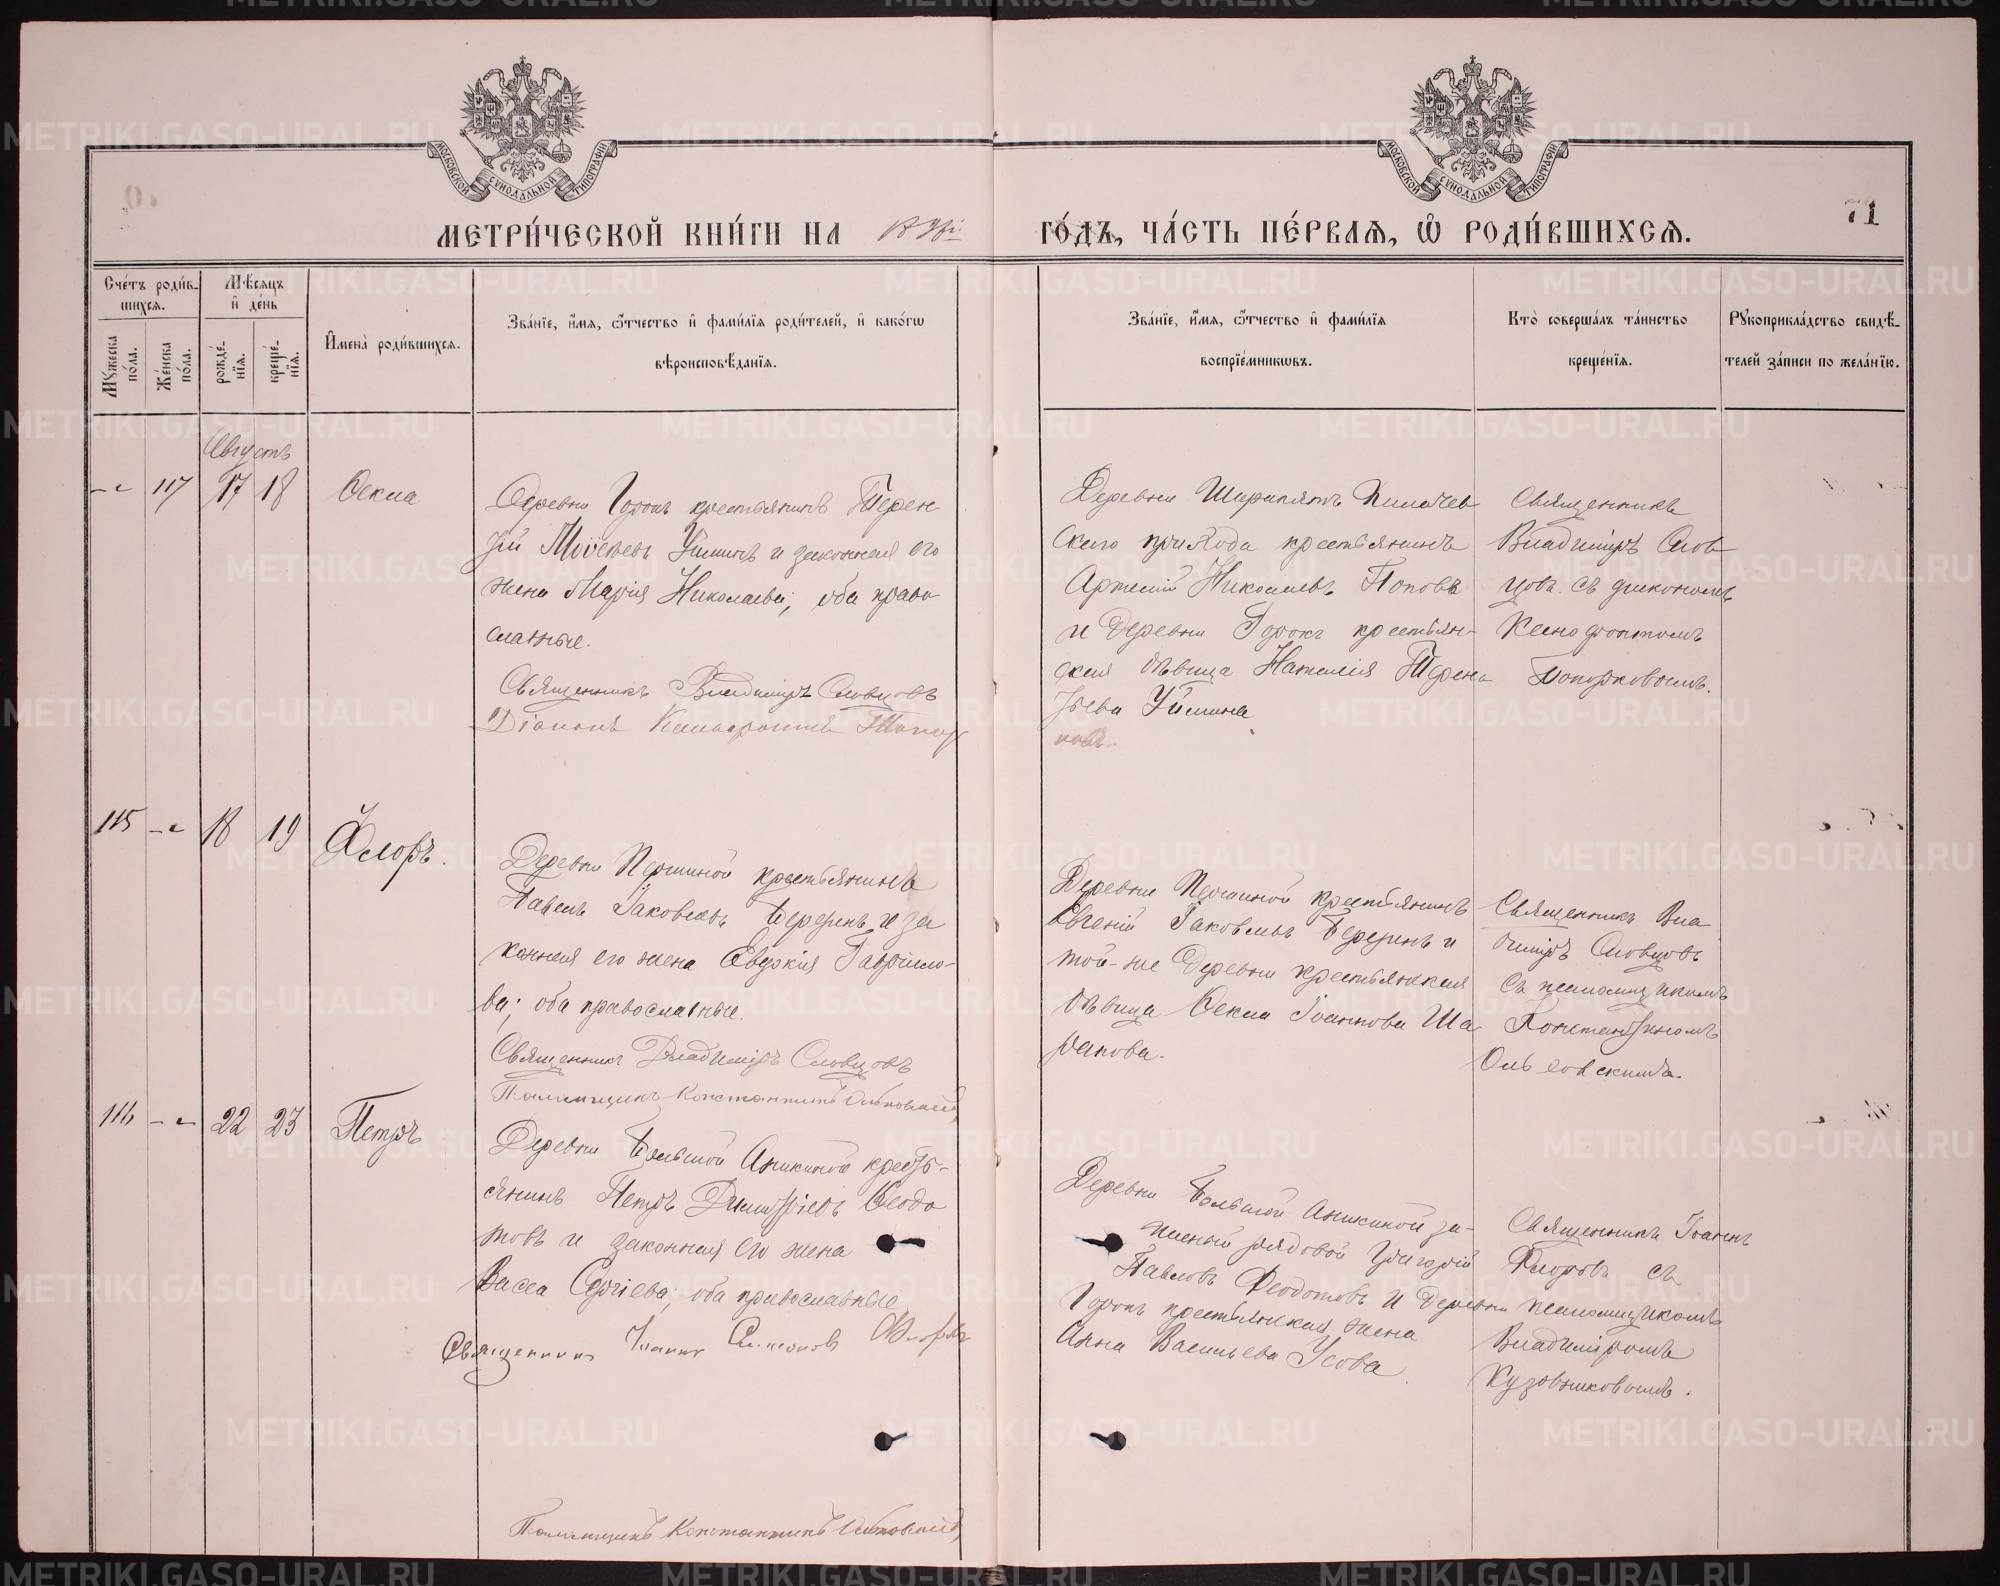 МОСКОВСКОЙ СѴНОДАЛЬНОЙ ТИПОГРАФІИ
МОСКОВСКОЙ СѴНОДАЛЬНОЙ ТИПОГРАФІИ
71
МЕТРИ́ЧЕСКОЙ КНИ́ГИ НА
ГО́ДЪ, ЧА́СТЬ ПЕ́РВАЯ, Ѡ҆ РОДИ́ВШИХСЯ.
Сче́тъ роди́в-
шихся.
Мѣсяцъ
и҆ де́нь
Му́жеска по́ла.
Же́нска по́ла.
рожде́-
нїя.
креще́-
нїя.
И҆мена̀ роди́вшихся.
Зва́нїе, и҆́мя, ѻ҆́тчество и҆ фами́лїя роди́телей, и҆ како́гѡ
вѣроисповѣ́данїя.
Зва́нїе, и҆́мя, ѻ҆́тчество и҆ фами́лїя
воспрїе́мникѡвъ.
Кто̀ соверша́лъ та́инство
креще́нїя.
Рукоприкла́дство свидѣ́-
телей за́писи по жела́нїю.
Августъ
117 17 18 Ѳекла
Деревни Горокъ крестьянинъ Терен
тій Моѵсеевъ Уйминъ и законная его
жена Марія Николаева, оба право
славные.
Священникъ Владиміръ Словцовъ
Діаконъ Ксенофонтъ Топор
Деревни Ширипятъ Килачев
скаго прихода крестьянинъ
Артемій Николаевъ Поповъ
и Деревни Горокъ крестьян-
ская дѣвица Наталія Терен
тьева Уймина
ковъ.
Священникъ
Владиміръ Слов
цовъ съ діакономъ
Ксенофонтомъ
Топорковымъ.
115 18 19 Флоръ.
Деревни Першиной крестьянинъ
Павелъ Іаковлевъ Березинъ и за
конная его жена Евдокія Гаврило-
ва, оба православные.
Священникъ Владиміръ Словцовъ
Псаломщикъ Константинъ Ольховскій
Деревни Першиной крестьянинъ
Евгеній Іаковлевъ Березинъ и
той-же Деревни крестьянская
дѣвица Ѳекла Іоаннова Ша
рапова.
Священникъ Вла
диміръ Словцовъ
съ псаломщикомъ
Константиномъ
Ольховскимъ.
116 22 23 Петръ
Деревни Большой Аникиной кресть-
янинъ Петръ Димитріевъ Ѳеодо
товъ и законная его жена
Васса Сергіева, оба православные
Священник Іоанн Симеонов Флоров
Деревни Большой Аникиной за-
пасный рядовой Григорій
Павловъ Ѳеодотовъ и Деревни
Горокъ крестьянская жена
Анна Васильева Усова.
Священникъ Іоаннъ
Флоровъ съ
псаломщикомъ
Владиміромъ
Кузовниковымъ.
Псаломщикъ Константинъ Ольховскій
METRIKI.GASO-URAL.RU